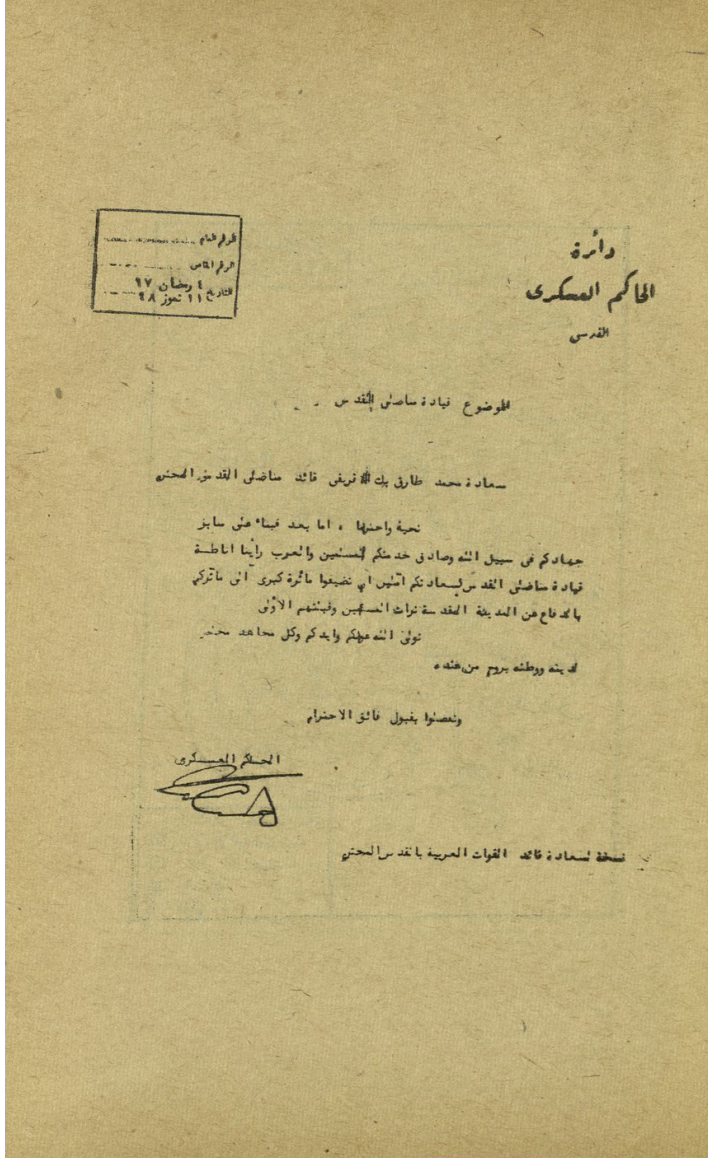 دائرة
الحاكم العسكرى
القدس
الرقم العام
الرقم الخاص
التاريخ ٤ رمضان ٦٧
١١ تموز ٤٨
الموضوع قيادة مناضلى القدس
سعادة محمد طارق بك الافريقى قائد مناضلى القدس المحترم
تحية واحتراما ، اما بعد فبناء على سابق
جهادكم فى سبيل الله وصادق خدمتكم للمسلمين والعرب رأينا اناطة
قيادة مناضلى القدس لسعادتكم آملين ان تضيفوا مأثرة كبرى الى مآثركم
بالدفاع عن المدينة المقدسة تراث المسلمين وقبلتهم الاولى
تولى الله عملكم وايدكم وكل مجاهد مخلص
لدينه ووطنه بروح من عنده
وتفضلوا بقبول فائق الاحترام
الحاكم العسكرى
نسخة لسعادة قائد القوات العربية بالقدس المحترم